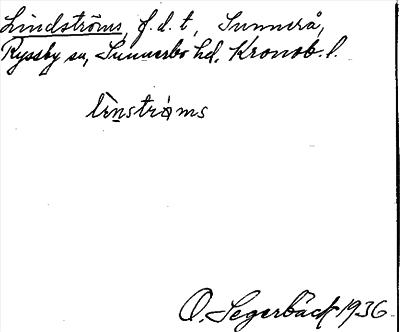 Lindströms, f.d.t, Sunnerå,
Ryssby sn, Sunnerbo hd, Kronob. l.
lìnstrǿms
O. Segerbäck 1936